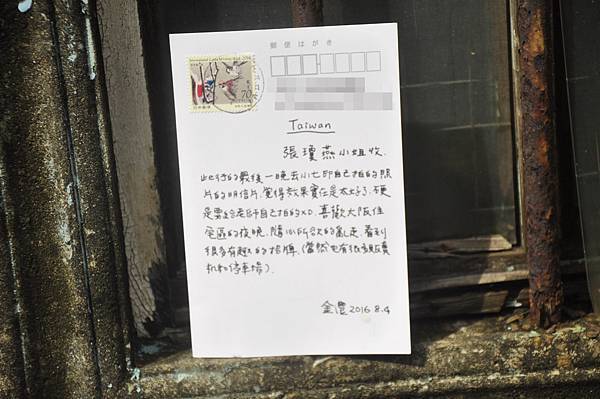 郵便はがき
70
Taiwan
張瓊燕小姐收
此行的最後一晚去小七印自己拍的照
片的明信片,覺得效果實在是太好了.硬
是要給是師自己拍的XD.喜歡大阪住
宅區的夜晚,隨心所欲的亂走,看到
很多有趣的招牌.(當然也有很多販賣
機和停車場).
金農 2016.8.4